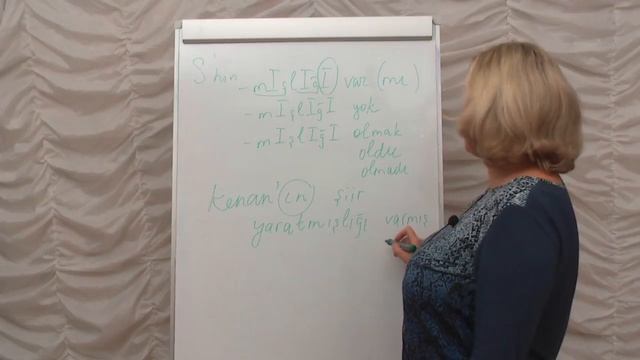 S'nin -mIşlIğI var (mı)
-mIşlIğI yok
-mIşlIğI olmak
oldu
olmadı
Kenan'ın şiir
yaratmışlığı varmış